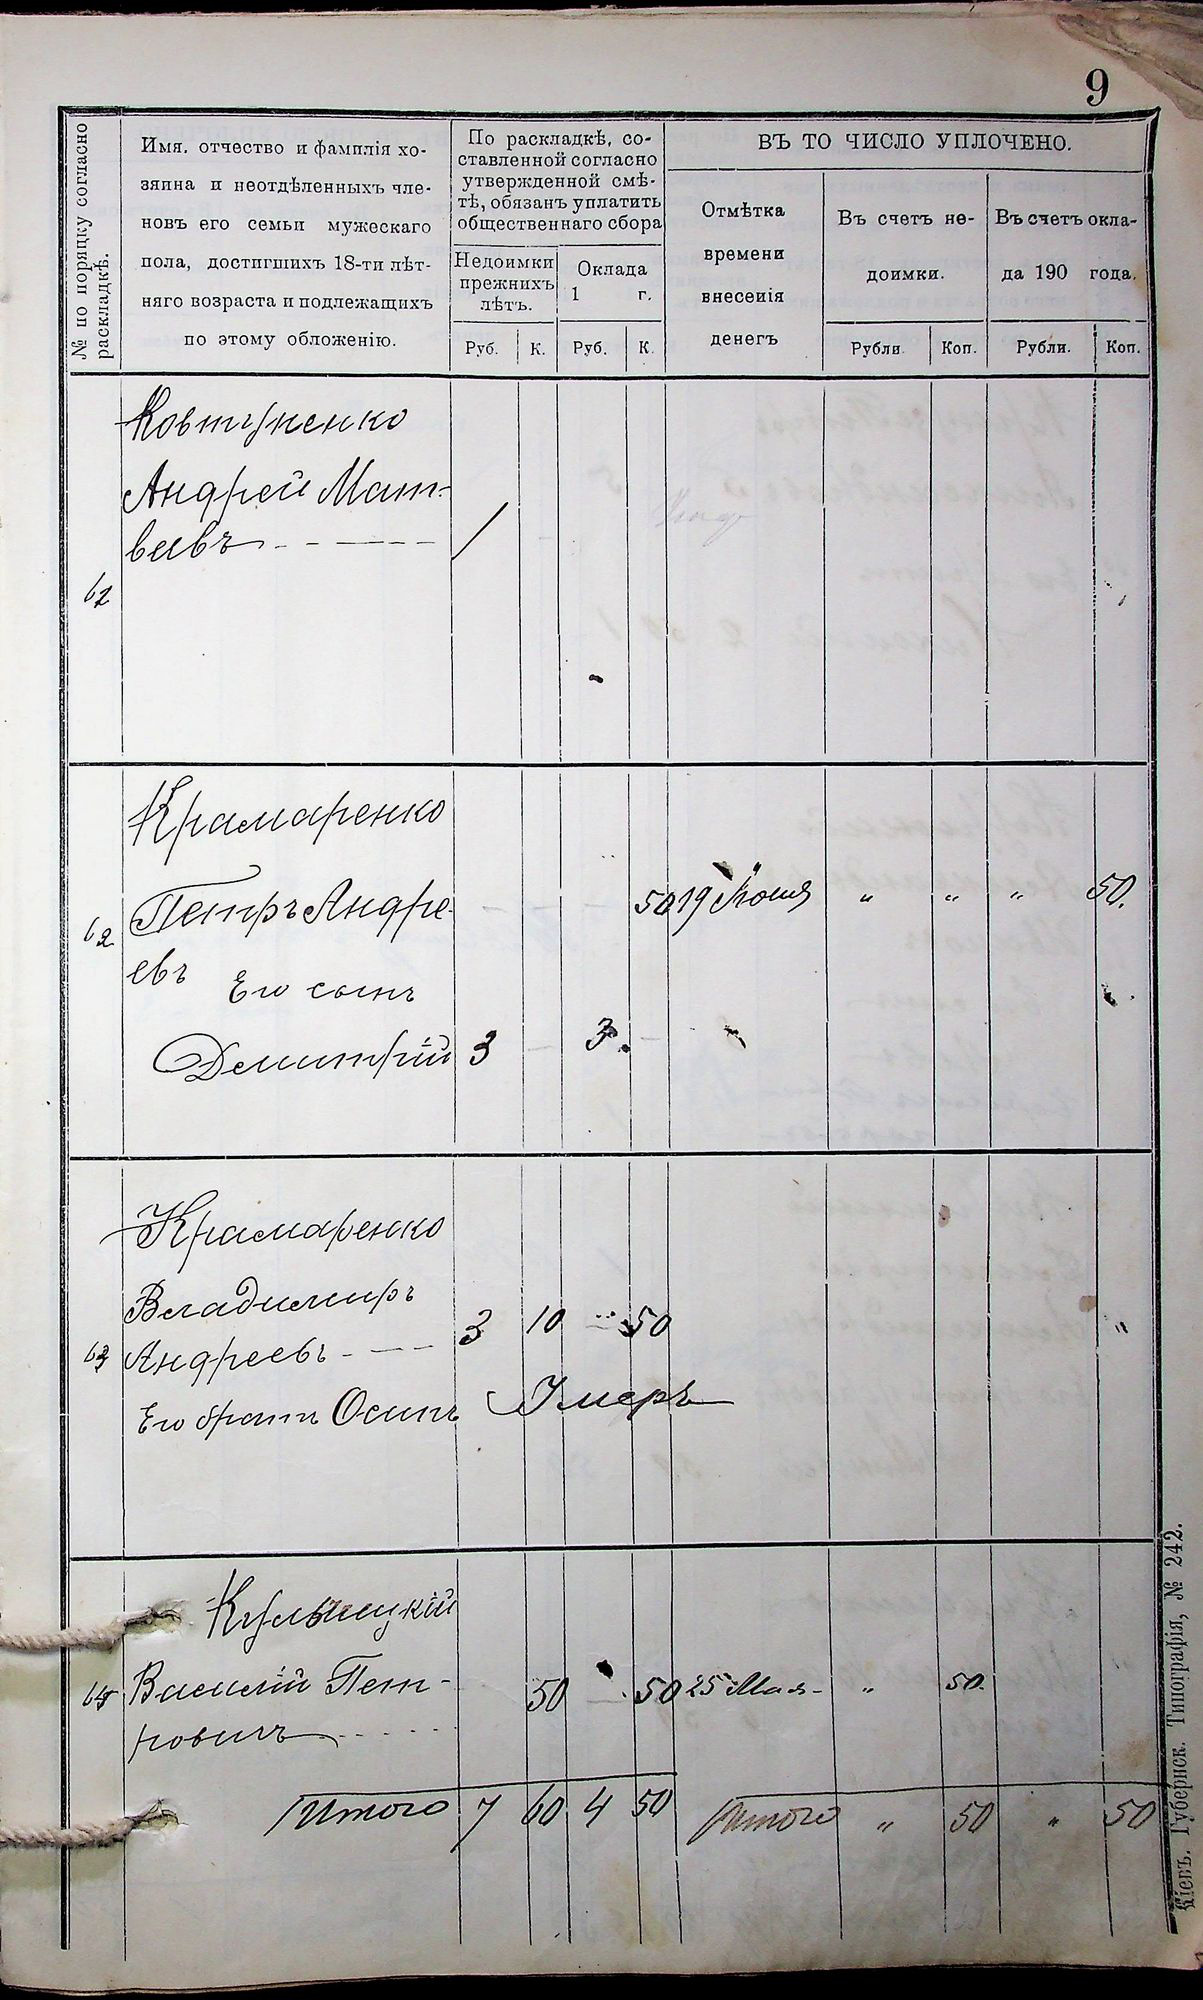 9
№ по поряцку согласно
раскладкѣ.
Имя, отчество и фамилія хо-
зяина и неотдѣленныхъ чле-
новъ его семьи мужескаго
пола, достигшихъ 18-ти лѣт-
няго возраста и подлежащихъ
по этому обложенію.
По раскладкѣ, со-
ставленной согласно
утвержденной смѣ-
тѣ, обязанъ уплатить
общественнаго сбора
Недоимки
прежнихъ
лѣтъ.
Оклада
1 г.
Руб. К. Руб. К.
ВЪ ТО ЧИСЛО УПЛОЧЕНО.
Отмѣтка
времени
внесенія
денегъ
Въ счетъ не-
доимки.
Въ счетъ окла-
да 190 года.
Рубли. Коп. Рубли. Коп.
Ковтуненко
Андрей Мат-
веевъ - - - - /
Крамаренко
62 Петръ Андре- 50 19 Іюня " " " 50.
евъ Его сынъ
Демитрій 3 3.
Крамаренко
Владимиръ 3 10 50
63 Андреевъ - - - "
Его братъ Осипъ Умеръ
Василій Пет- 50 50 25 Мая - " 50.
ровичъ - - - -
Итого 7 60 4 50 Итого " 50 " 50
Кіевъ. Губернск. Типографія, № 242.